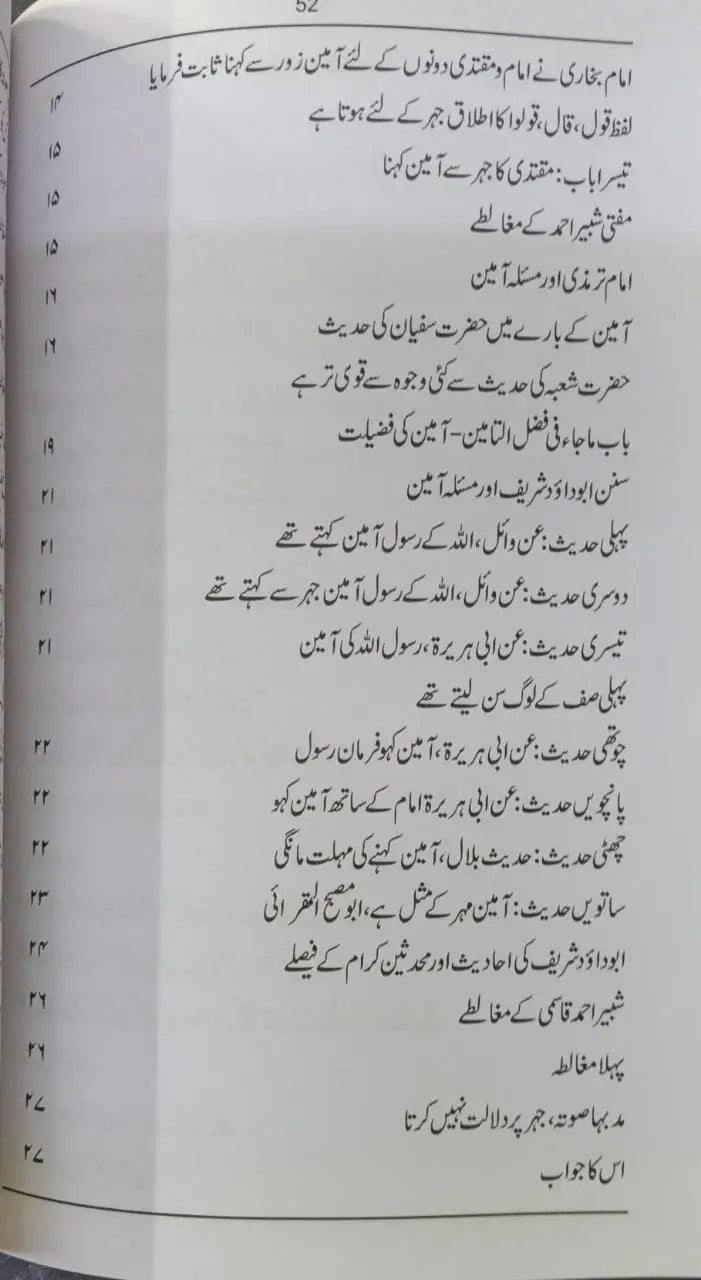 52
امام بخاری نے امام و مقتدی دونوں کے لئے آمین زور سے کہنا ثابت فرمایا ۱۴
لفظ قول، قال، قولوا کا اطلاق جہر کے لئے ہوتا ہے ۱۵
تیسرا باب: مقتدی کا جہر سے آمین کہنا ۱۵
مفتی شبیر احمد کے مغالطے ۱۵
امام ترمذی اور مسئلہ آمین ۱۶
آمین کے بارے میں حضرت سفیان کی حدیث ۱۶
حضرت شعبہ کی حدیث سے کئی وجوہ سے قوی تر ہے
باب ماجاء فی فضل التامین - آمین کی فضیلت ۱۹
سنن ابوداؤد شریف اور مسئلہ آمین ۲۱
پہلی حدیث: عن وائل، اللہ کے رسول آمین کہتے تھے ۲۱
دوسری حدیث: عن وائل، اللہ کے رسول آمین جہر سے کہتے تھے ۲۱
تیسری حدیث: عن ابی ہریرۃ، رسول اللہ کی آمین ۲۱
پہلی صف کے لوگ سن لیتے تھے
چوتھی حدیث: عن ابی ہریرۃ، آمین کہو فرمان رسول ۲۲
پانچویں حدیث: عن ابی ہریرۃ امام کے ساتھ آمین کہو ۲۲
چھٹی حدیث: حدیث بلال، آمین کہنے کی مہلت مانگی ۲۲
ساتویں حدیث: آمین مہر کے مثل ہے، ابو مصبح المقرائی ۲۳
ابوداؤد شریف کی احادیث اور محدثین کرام کے فیصلے ۲۴
شبیر احمد قاسمی کے مغالطے ۲۶
پہلا مغالطہ ۲۶
مد بہا صوتہ، جہر پر دلالت نہیں کرتا ۲۷
اس کا جواب ۲۷